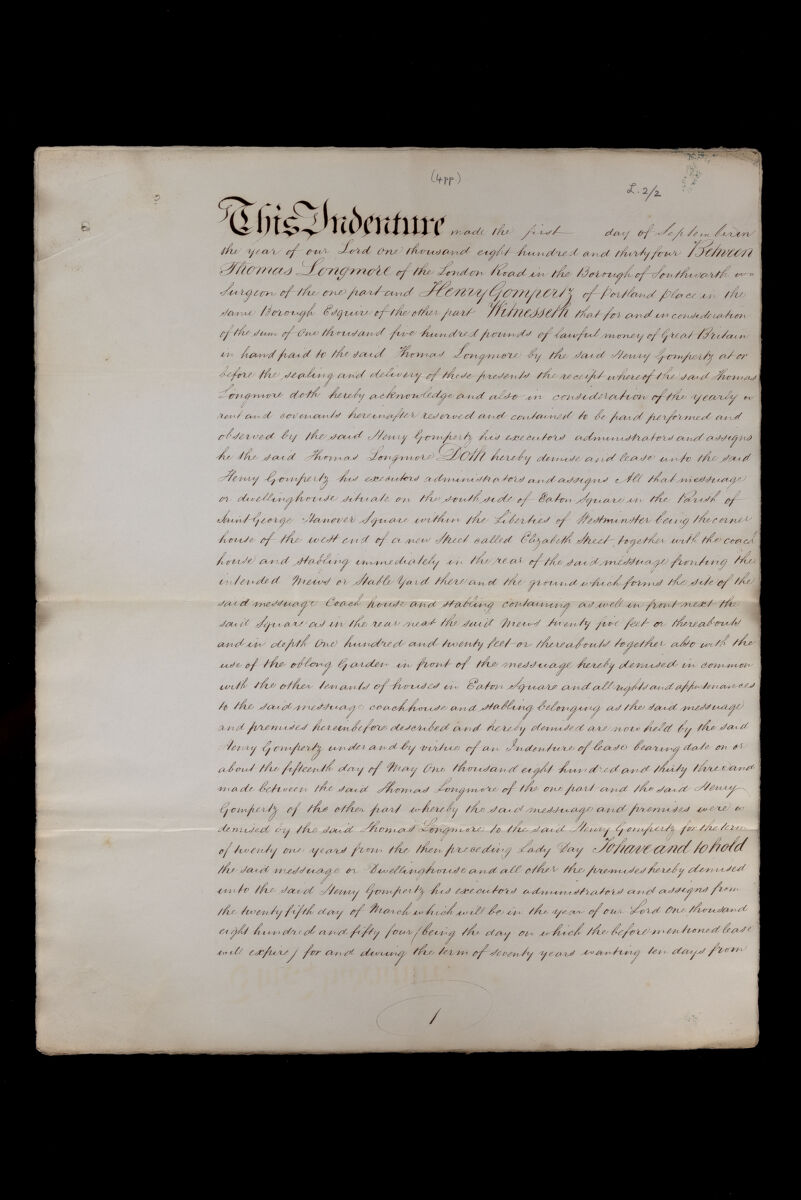 (4pp)
L. 2/2
This Indenture made the first day of September in
the year of our Lord One thousand eight hundred and thirty four Between
Thomas Longmore of the London Road in the Borough of Southwark
Surgeon of the one part and Henry Gompertz of Portland Place in the
same Borough Esquire of the other part Witnesseth that for and in consideration
of the sum of One thousand five hundred pounds of lawful money of Great Britain
in hand paid to the said Thomas Longmore by the said Henry Gompertz at or
before the sealing and delivery of these presents the receipt whereof the said Thomas
Longmore doth hereby acknowledge and also in consideration of the yearly
rent and covenants hereinafter reserved and contained to be paid performed and
observed by the said Henry Gompertz his executors administrators and assigns
he the said Thomas Longmore Doth hereby demise and lease unto the said
Henry Gompertz his executors administrators and assigns All that messuage
or dwellinghouse situate on the south side of Eaton Square in the Parish of
Saint George Hanover Square within the Liberties of Westminster being the corner
house of the west end of a new Street called Elizabeth Street together with the coach
house and stabling immediately in the rear of the said messuage fronting the
intended Mews or Stable Yard there and the ground which forms the site of the
said messuage Coach house and stabling containing as well in front next the
said Square as in the rear next the said Mews twenty five feet or thereabouts
and in depth One hundred and twenty feet or thereabouts together also with the
use of the oblong Garden in front of the messuage hereby demised in common
with the other tenants of houses in Eaton Square and all rights and appurtenances
to the said messuage coachhouse and stabling belonging as the said messuage
and premises hereinbefore described and hereby demised are now held by the said
Henry Gompertz under and by virtue of an Indenture of lease bearing date on or
about the fifteenth day of May One thousand eight hundred and thirty three and
made between the said Thomas Longmore of the one part and the said Henry
Gompertz of the other part whereby the said messuage and premises were
demised by the said Thomas Longmore to the said Henry Gompertz for the term
of twenty one years from the then preceding Lady Day To have and to hold
the said messuage or Dwellinghouse and all other the premises hereby demised
unto the said Henry Gompertz his executors administrators and assigns from
the twenty fifth day of March which will be in the year of our Lord One thousand
eight hundred and fifty four (being the day on which the before mentioned lease
will expire) for and during the term of seventy years wanting ten days from
1